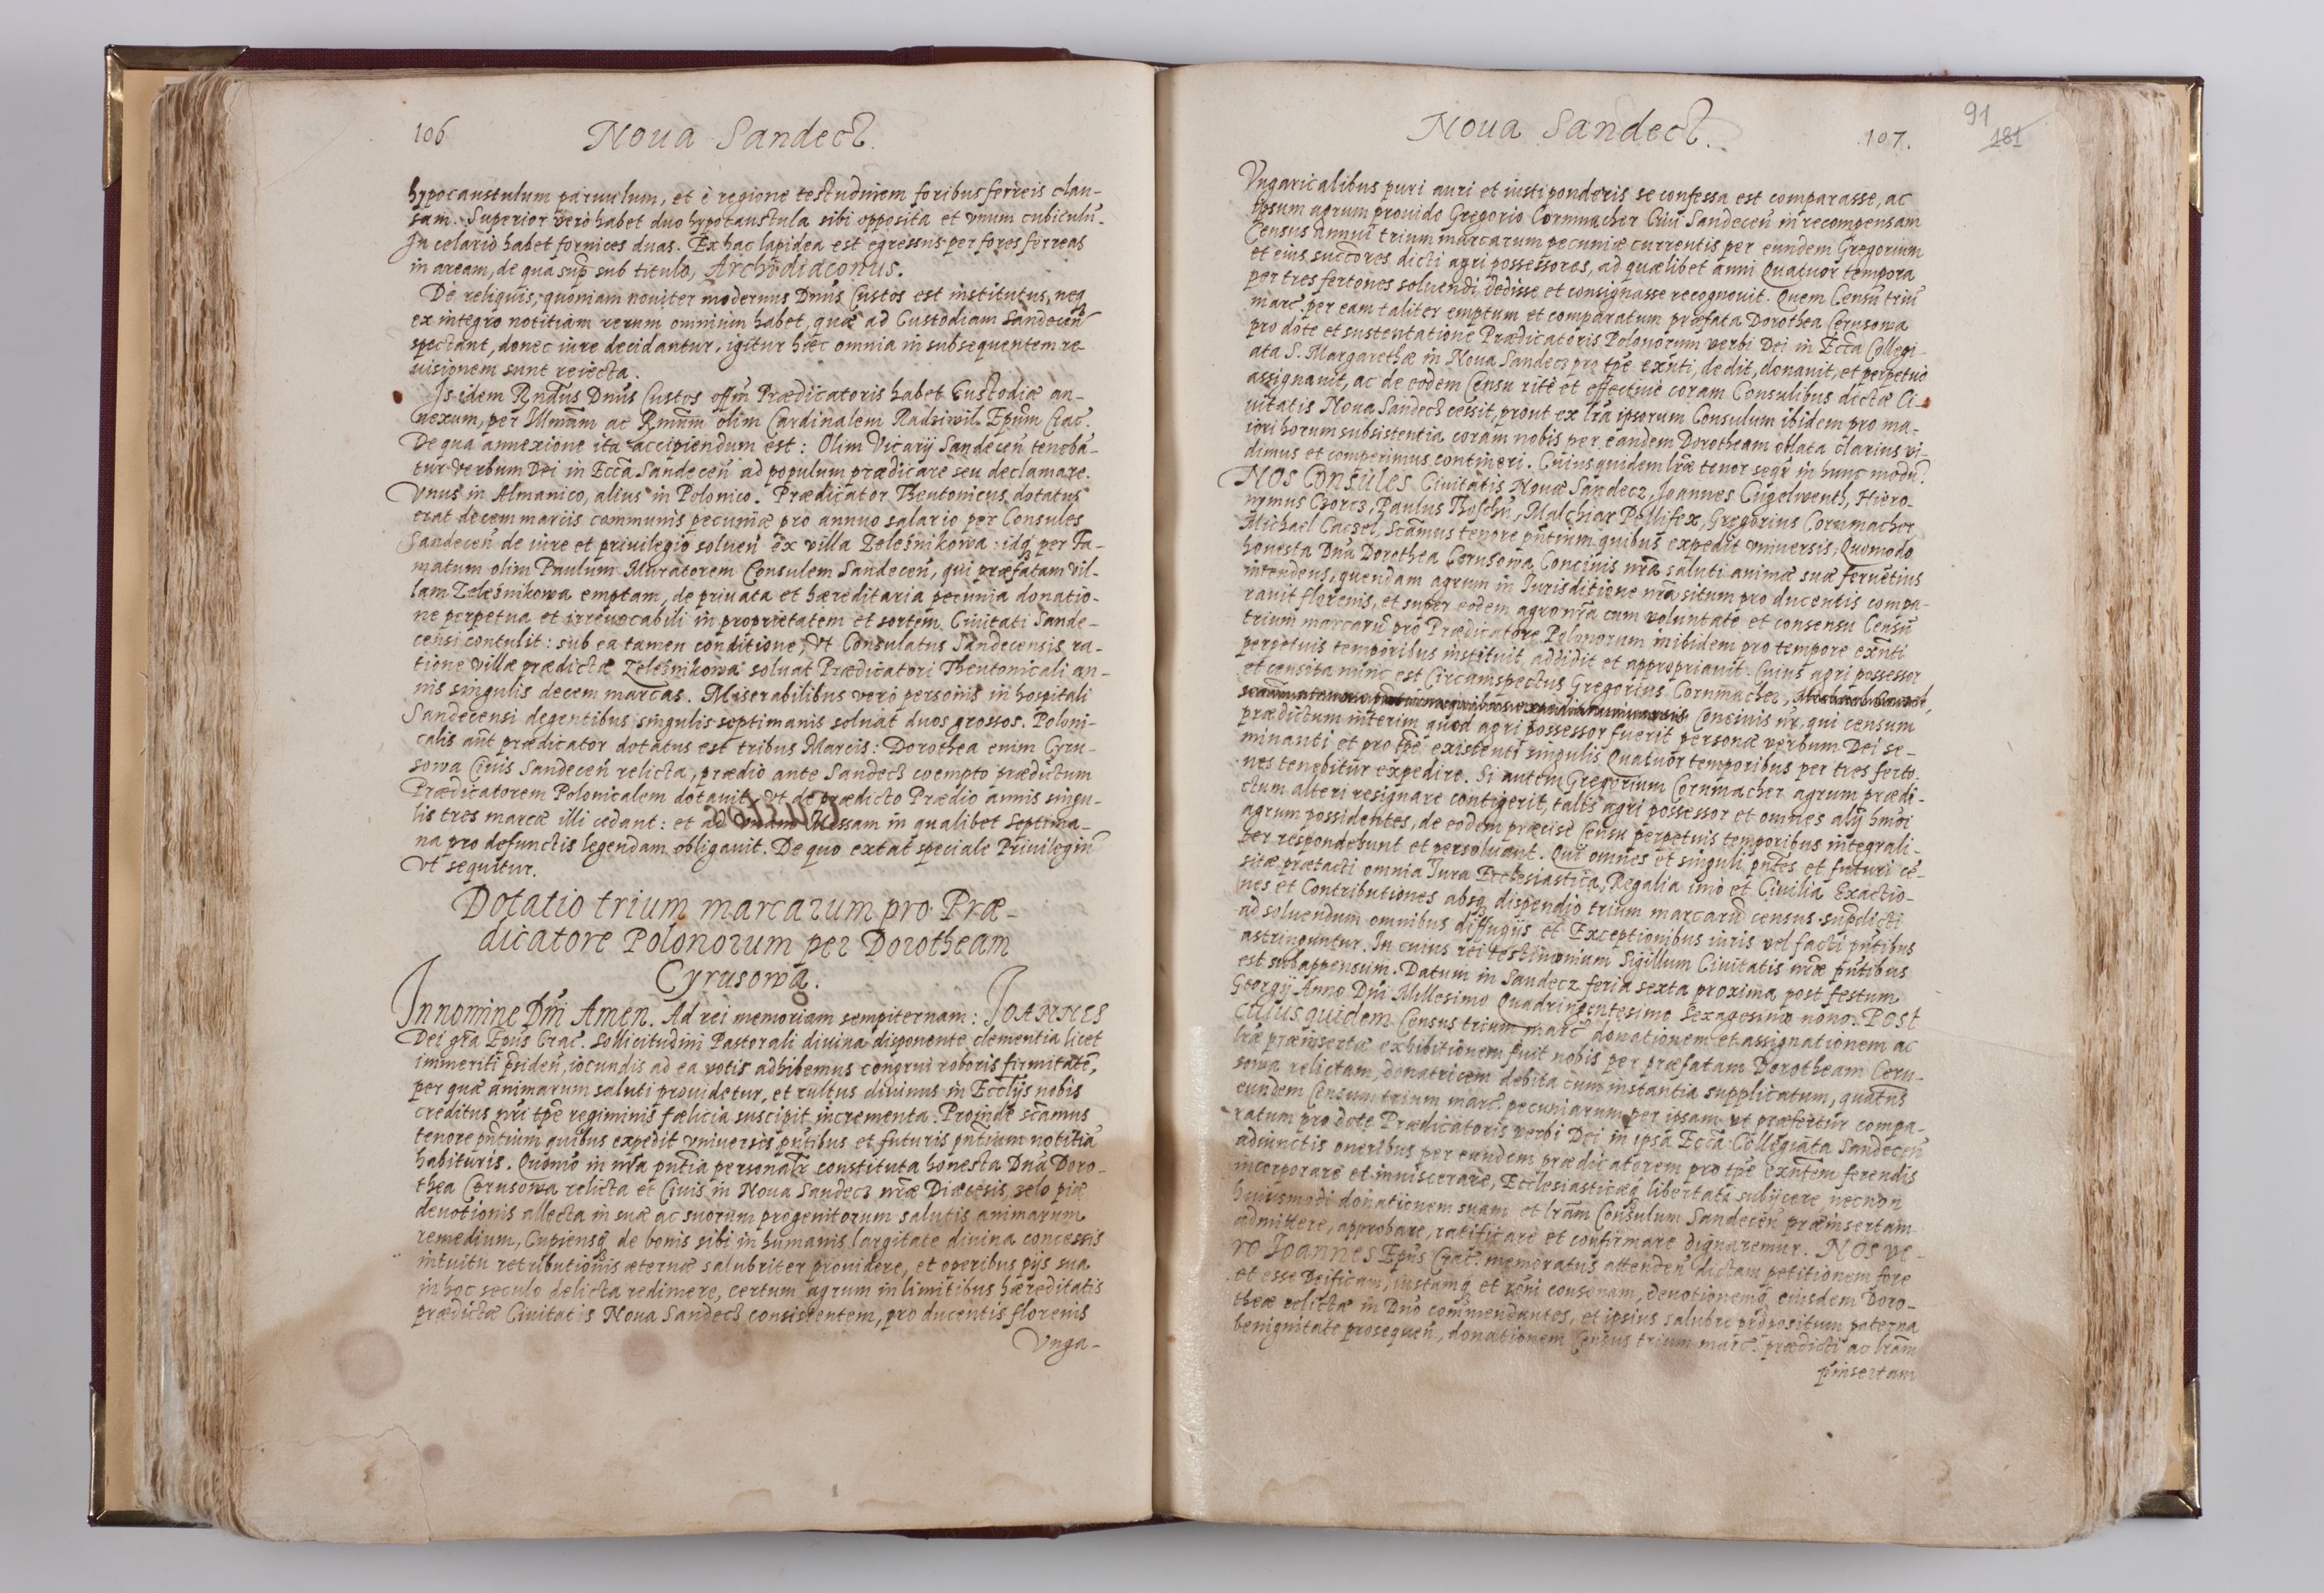 106
Noua Sandecz.
hypocaustulum paruulum, et è regione testudinem foribus ferreis clau-
sam. Superior verò habet duo hypocaustula sibi opposita et vnum cubiculũ.
In celario habet fornices duas. Ex hac lapidea est egressus per fores ferreas
in aream, de qua sup̃ sub titulo, Archidiaconus.
De reliquis, quoniam nouiter modernus Dn̄us Custos est institutus, neq
ex integro notitiam rerum omnium habet, quæ ad Custodiam Sandeceñ
spectant, donec iure decidantur, igitur hæc omnia in subsequentem re-
uisionem sunt reiecta.
Is idem Rn̄dus Dn̄us Custos off̃m Prædicatoris habet Custodiæ an-
nexum, per Illm̃am ac Rm̃um olim Cardinalem Radziwil Ep̃um Crac.
De qua annexione ita accipiendum est: Olim Vicarij Sandeceñ tenebã-
tur verbum Dei in Eccã Sandeceñ ad populum prædicare seu declamare.
Vnus in Almanico, alius in Polonico. Prædicator Theutonicus dotatus
erat decem marcis communis pecuniæ pro annuo salario per Consules
Sandeceñ de iure et priuilegio solueñ ex villa Zeleśnikowa: idq́ per Fa-
matum olim Paulum Muratorem Consulem Sandeceñ, qui præfatam vil-
lam Zeleśnikowa emptam, de priuata et hæreditaria pecunia donatio-
ne perpetua et irreuocabili in proprietatem et sortem Ciuitati Sande-
censi contulit: sub ea tamen conditione, vt Consulatus Sandecensis ra-
tione villæ prædictæ Zeleśnikowa soluat Prædicatori Theutonicali an-
nis singulis decem marcas. Miserabilibus verò personis in hospitali
Sandecensi degentibus singulis septimanis soluat duos grossos. Poloni-
calis aũt prædicator dotatus est tribus Marcis: Dorothea enim Cyru-
sowa Ciuis Sandeceñ relicta, prædio ante Sandecz coempto prædictum
Prædicatorem Polonicalem dotauit, vt de prædicto Prædio annis singu-
lis tres marcæ illi cedant: et ad vnam Missam in qualibet Septima-
na pro defunctis legendam obligauit. De quo extat speciale Priuilegiũ
vt sequitur.
Dotatio trium marcarum pro Præ-
dicatore Polonorum per Dorotheam
Cyrusowa.
In nomine Dñi Amen. Ad rei memoriam sempiternam: Ioannes
Dei grã Ep̃us Crac. Sollicitudini Pastorali diuina disponente clementia licet
immeriti p̃sideñ, iocundis ad ea votis adhibemus congrui roboris firmitatẽ,
per quæ animarum saluti prouidetur, et cultus diuinus in Eccl̃ijs nobis
creditus nr̃i tp̃e regiminis fælicia suscipit incrementa. Proinde scãmus
tenore pñtium quibus expedit vniuersis pñtibus et futuris pñtium notitiã
habituris. Quomõ in nr̃a pñtia personalr̃ constituta honesta Dñа Doro-
thea Cerusowa relicta et Ciuis in Noua Sandecz nr̃æ Diæcesis, zelo piæ
deuotionis allecta in suæ ac suorum progenitorum salutis animarum
remedium, Cupiensq́ de bonis sibi in humanis largitate diuina concessis
intuitu retributionis æternæ salubriter prouidere, et operibus pijs sua
in hoc seculo delicta redimere, certum agrum in limitibus hæreditatis
prædictæ Ciuitatis Noua Sandecz consistentem, pro ducentis florenis
Vnga-
Noua Sandecz.
107.
91
181
Vngaricalibus puri auri et iusti ponderis se confessa est comparasse, ac
ipsum agrum prouido Gregorio Cornmacher Ciui Sandeceñ in recompensam
Census annui trium marcarum pecuniæ currentis per eundem Gregorium
et eius succõres dicti agri possessores, ad quælibet anni Quatuor tempora
per tres fertones soluendi dedisse et consignasse recognouit. Quem Censũ triũ
marc. per eam taliter emptum et comparatum præfata Dorothea Cerusowa
pro dote et sustentatione Prædicatoris Polonorum verbi Dei in Eccã Collegi-
ata S. Margarethæ in Noua Sandecz pro tp̃e exñti, dedit, donauit, et perpetuò
assignauit, ac de eodem Censu ritè et effectiuè coram Consulibus dictæ Ci-
uitatis Noua Sandecz cessit, prout ex lr̃a ipsorum Consulum ibidem pro ma-
iori horum subsistentia coram nobis per eandem Dorotheam oblata clarius vi-
dimus et comperimus contineri. Cuius quidem lr̃æ tenor seqr̃ in hunc modũ.
Nos Consules Ciuitatis Nouæ Sandecz, Ioannes Cugelwenth, Hiero-
nymus Czorcz, Paulus Tholchũ, Malchiar Pellifex, Gregorius Cornmacher
Michael Caczel, Scãmus tenore pñtium quibus expedit vniuersis, Quomodo
honesta Dñа Dorothea Cerusowa Conciuis nr̃a saluti animæ suæ feruẽtius
intendens, quendam agrum in Iurisditione nr̃a situm pro ducentis compa-
rauit florenis, et super eodem agro nr̃a cum voluntate et consensu Censũ
trium marcarũ pro Prædicatore Polonorum inibidem pro tempore exñti
perpetuis temporibus instituit, addidit et appropriauit. Cuius agri possessor
et censita nunc est Circumspectus Gregorius Cornmacher,
Conciuis nr̃, qui censum
prædictum interim quod agri possessor fuerit personæ verbum Dei se-
minanti et pro tp̃e existenti singulis Quatuor temporibus per tres ferto-
nes tenebitur expedire. Si autem Gregorium Cornmacher agrum prædi-
ctum alteri resignare contigerit, talis agri possessor et omnes alij hm̃oi
agrum possidentes, de eodem præcisè Censu perpetuis temporibus integrali-
ter respondebunt et persoluant. Qui omnes et singuli pñtes et futuri cẽ-
sitæ prætacti omnia Iura Ecclesiastica, Regalia imò et Ciuilia Exactio-
nes et Contributiones absq́ dispendio trium marcarũ census sup̃dicti
ad soluendum omnibus diffugijs et Exceptionibus iuris vel facti pñtibus
astringuntur. In cuius rei testimonium Sigillum Ciuitatis nr̃æ pñtibus
est subappensum. Datum in Sandecz feria sexta proxima post festum
Georgij Anno Dñi Millesimo Quadringentesimo Sexagesimo nono. Post
cuius quidem Census trium marc. donationem et assignationem ac
lr̃æ præinsertæ exhibitionem fuit nobis per præfatam Dorotheam Ceru-
sowa relictam, donatricem debita cum instantia supplicatum, quatñs
eundem Censum trium marc. pecuniarum per ipsam vt præfertur compa-
ratum pro dote Prædicatoris verbi Dei in ipsa Eccã Collegiata Sandeceñ
adiunctis oneribus per eundem prædicatorem pro tp̃e exñtem ferendis
incorporare et inuiscerare, Ecclesiasticæq́ libertati subijcere, necnon
huiusmodi donationem suam et lr̃am Consulum Sandeceñ præinsertam
admittere, approbare, ratificare et confirmare dignaremur. Nos ve-
ro Ioannes Ep̃us Crac. memoratus attendeñ dictam petitionem fore
et esse Deificam, iustamq́ et rõni consonam, deuotionemq́ eiusdem Doro-
theæ relictæ in Dño commendantes, et ipsius salubre propositum paterna
benignitate prosequeñ, donationem Census trium marc. prædicti ac lr̃am
p̃insertam